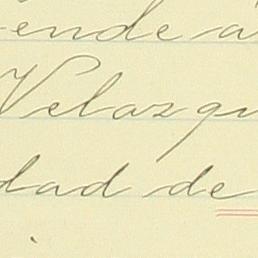 ende a
Velazqu
dad de